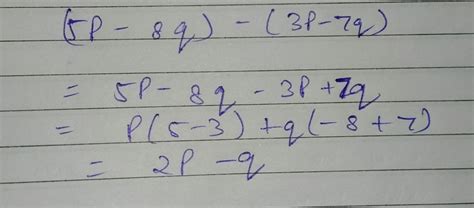 (5P - 8q) - (3P-7q)
= 5P - 8q - 3P + 7q
= P(5-3) + q(-8+7)
= 2P - q